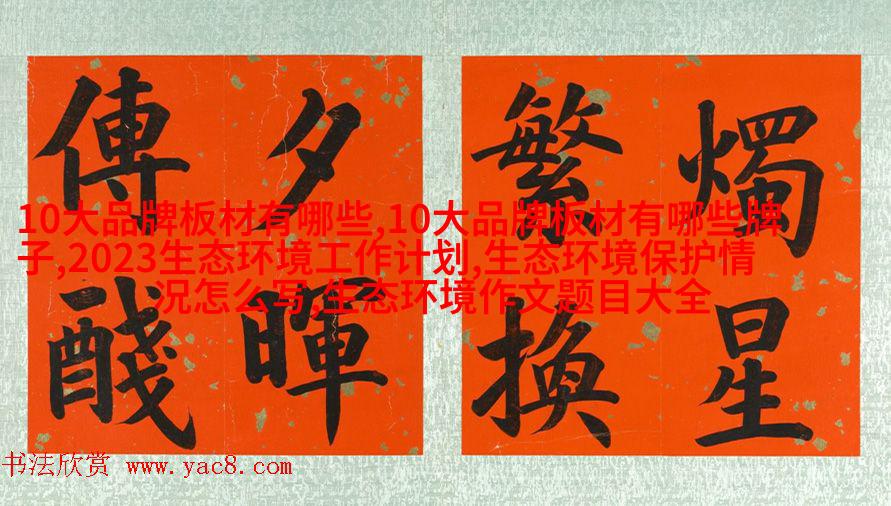 燭星
繁換
夕暉
傳醆
10大品牌板材有哪些,10大品牌板材有哪些牌
子,2023生态环境工作计划,生态环境保护情
况怎么写,生态环境作文题目大全
书法欣赏 www.yac8.com